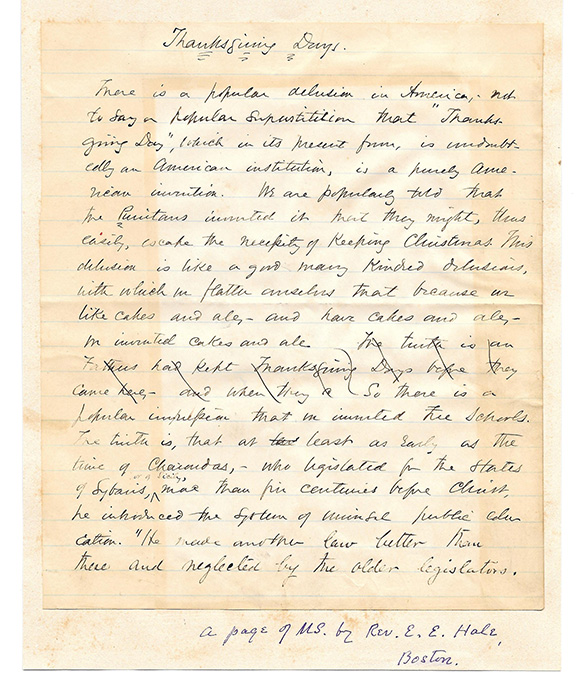 Thanksgiving Days.
There is a popular delusion in America,- not
to say a popular superstition that "Thanks-
giving Day", which in its present form, is undoubt-
edly an American institution, is a purely Ame-
rican invention. We are popularly told that
the Puritans invented it that they might, thus
easily, escape the necessity of keeping Christmas. This
delusion is like a good many kindred delusions,
with which we flatter ourselves that because we
like cakes and ale,- and have cakes and ale,-
we invented cakes and ale. The truth is our
Fathers had kept Thanksgiving Days before they
came here,- and when they So there is a
popular impression that we invented free schools.
The truth is, that at least as early as the
time of Charondas,- who legislated for the states
of Sybaris, more than five centuries before Christ,
he introduced the system of universal public edu
cation. "He made another law better than
these and neglected by the older legislators.
a page of MS. by Rev. E. E. Hale,
Boston.